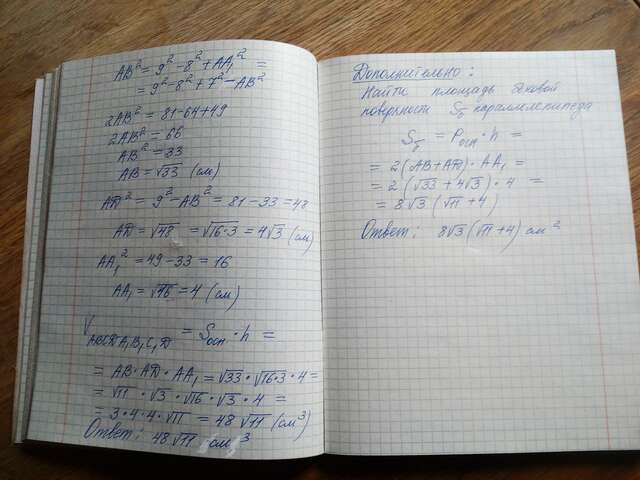 AB² = 9² - 8² + AA₁² =
= 9² - 8² + 7² - AB²
2AB² = 81 - 64 + 49
2AB² = 66
AB² = 33
AB = √33 (см)
AD² = 9² - AB² = 81 - 33 = 48
AD = √48 = √16·3 = 4√3 (см)
AA₁² = 49 - 33 = 16
AA₁ = √16 = 4 (см)
V ABCDA₁B₁C₁D = Sосн · h =
= AB · AD · AA₁ = √33 · √16·3 · 4 =
= √11 · √3 · √16 · √3 · 4 =
= 3 · 4 · 4 · √11 = 48√11 (см³)
Ответ: 48√11 см³
Дополнительно:
Найти площадь боковой
поверхности Sб параллелепипеда
Sб = Pосн · h =
= 2(AB + AD) · AA₁ =
= 2(√33 + 4√3) · 4 =
= 8√3(√11 + 4)
Ответ: 8√3(√11 + 4) см²